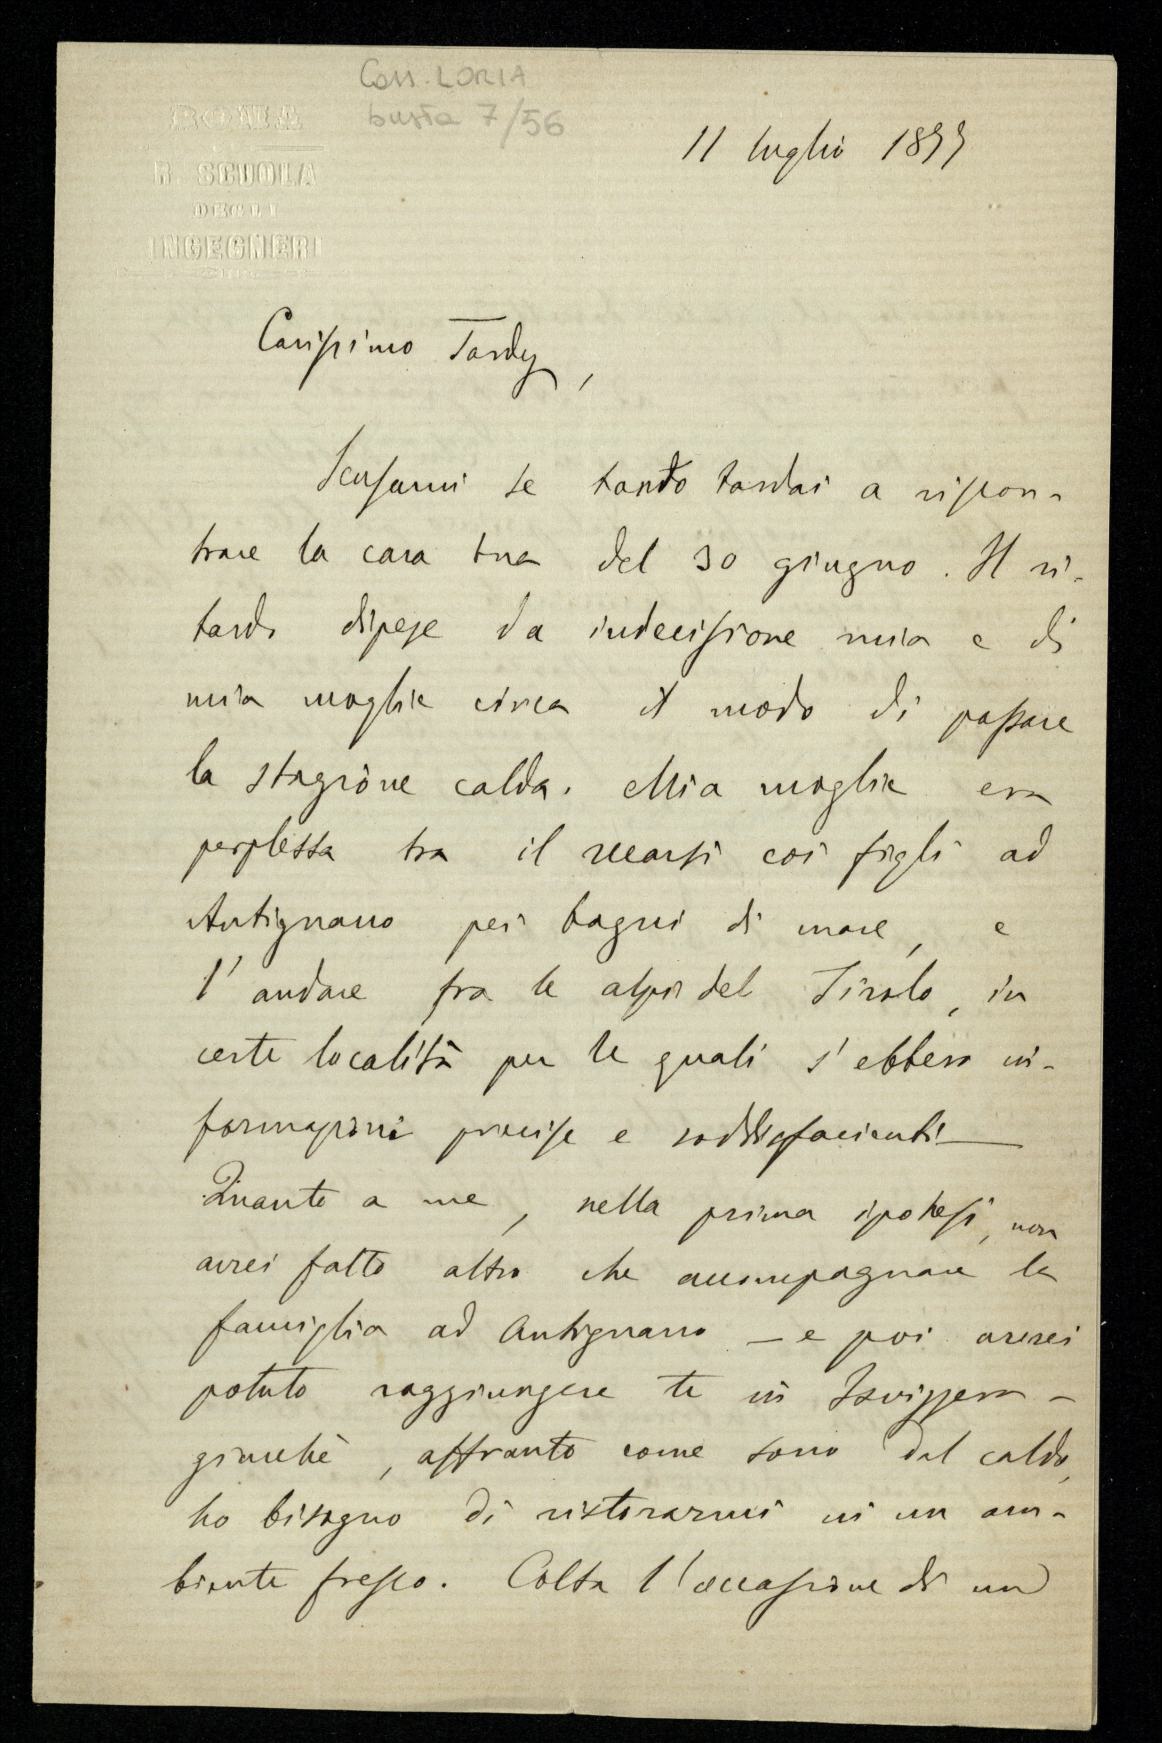 Corr. LORIA
busta 7/56
ROMA
R. SCUOLA
DEGLI
INGEGNERI
11 luglio 1877
Carissimo Tardy,
Scusami se tanto tardai a riscon-
trare la cara tua del 30 giugno. Il ri-
tardo dipese da indecisione mia e di
mia moglie circa il modo di passare
la stagione calda. Mia moglie era
perplessa tra il recarsi coi figli ad
Antignano pei bagni di mare, e
l'andare fra le alpi del Tirolo, in
certe località per le quali s'ebbero in-
formazioni precise e soddisfacienti —
Quanto a me, nella prima ipotesi, non
avrei fatto altro che accompagnare la
famiglia ad Antignano — e poi avrei
potuto raggiungere te in Isvizzera —
giacchè, affranto come sono dal caldo,
ho bisogno di ristorarmi in un am-
biente fresco. Colta l'occasione di un